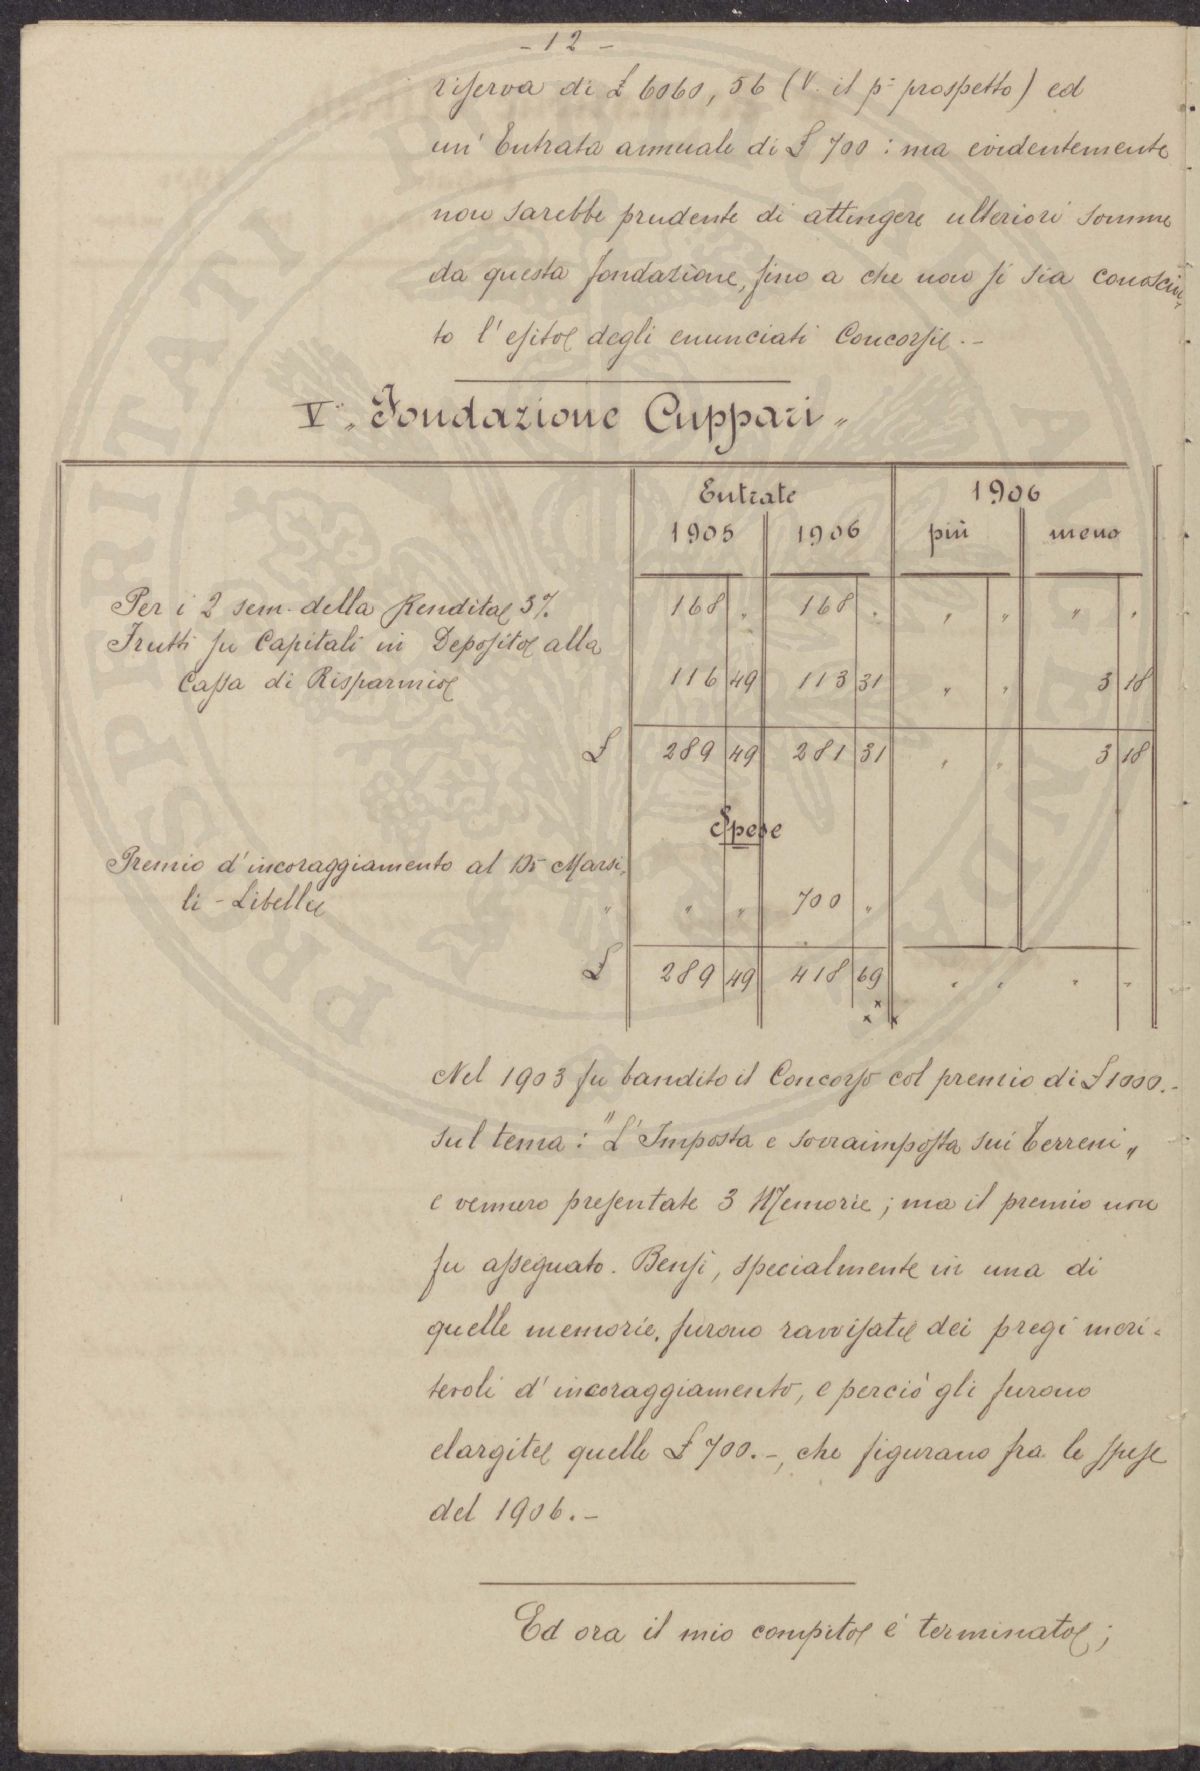 - 12 -
riserva di £ 6060,56 (V. il p° prospetto) ed
un' Entrata annuale di £ 700: ma evidentemente
non sarebbe prudente di attingere ulteriori somme
da questa fondazione, fino a che non si sia conosciu-
to l'esito degli enunciati Concorsi.-
V° „Fondazione Cuppari„
Entrate 1906
1905 1906 più meno
Per i 2 sem. della Rendita 3% 168 „ 168 „ „ „ „ „
Frutti su Capitali in Deposito alla
Cassa di Risparmio 116 49 113 31 „ „ 3 18
£ 289 49 281 31 „ „ 3 18
Spese
Premio d'incoraggiamento al Dr Marsi-
li-Libelli „ „ „ 700 „
£ 289 49 418 69 „ „ „ „
x x x
Nel 1903 fu bandito il Concorso col premio di £ 1000.-
sul tema: "L'Imposta e sovraimposta sui terreni„
e vennero presentate 3 Memorie; ma il premio non
fu assegnato. Bensì, specialmente in una di
quelle memorie, furono ravvisati dei pregi meri-
tevoli d'incoraggiamento, e perciò gli furono
elargite quelle £ 700.-, che figurano fra le spese
del 1906.-
Ed ora il mio compito è terminato;
PROSPERITATI PUBLICAE AUGENDAE